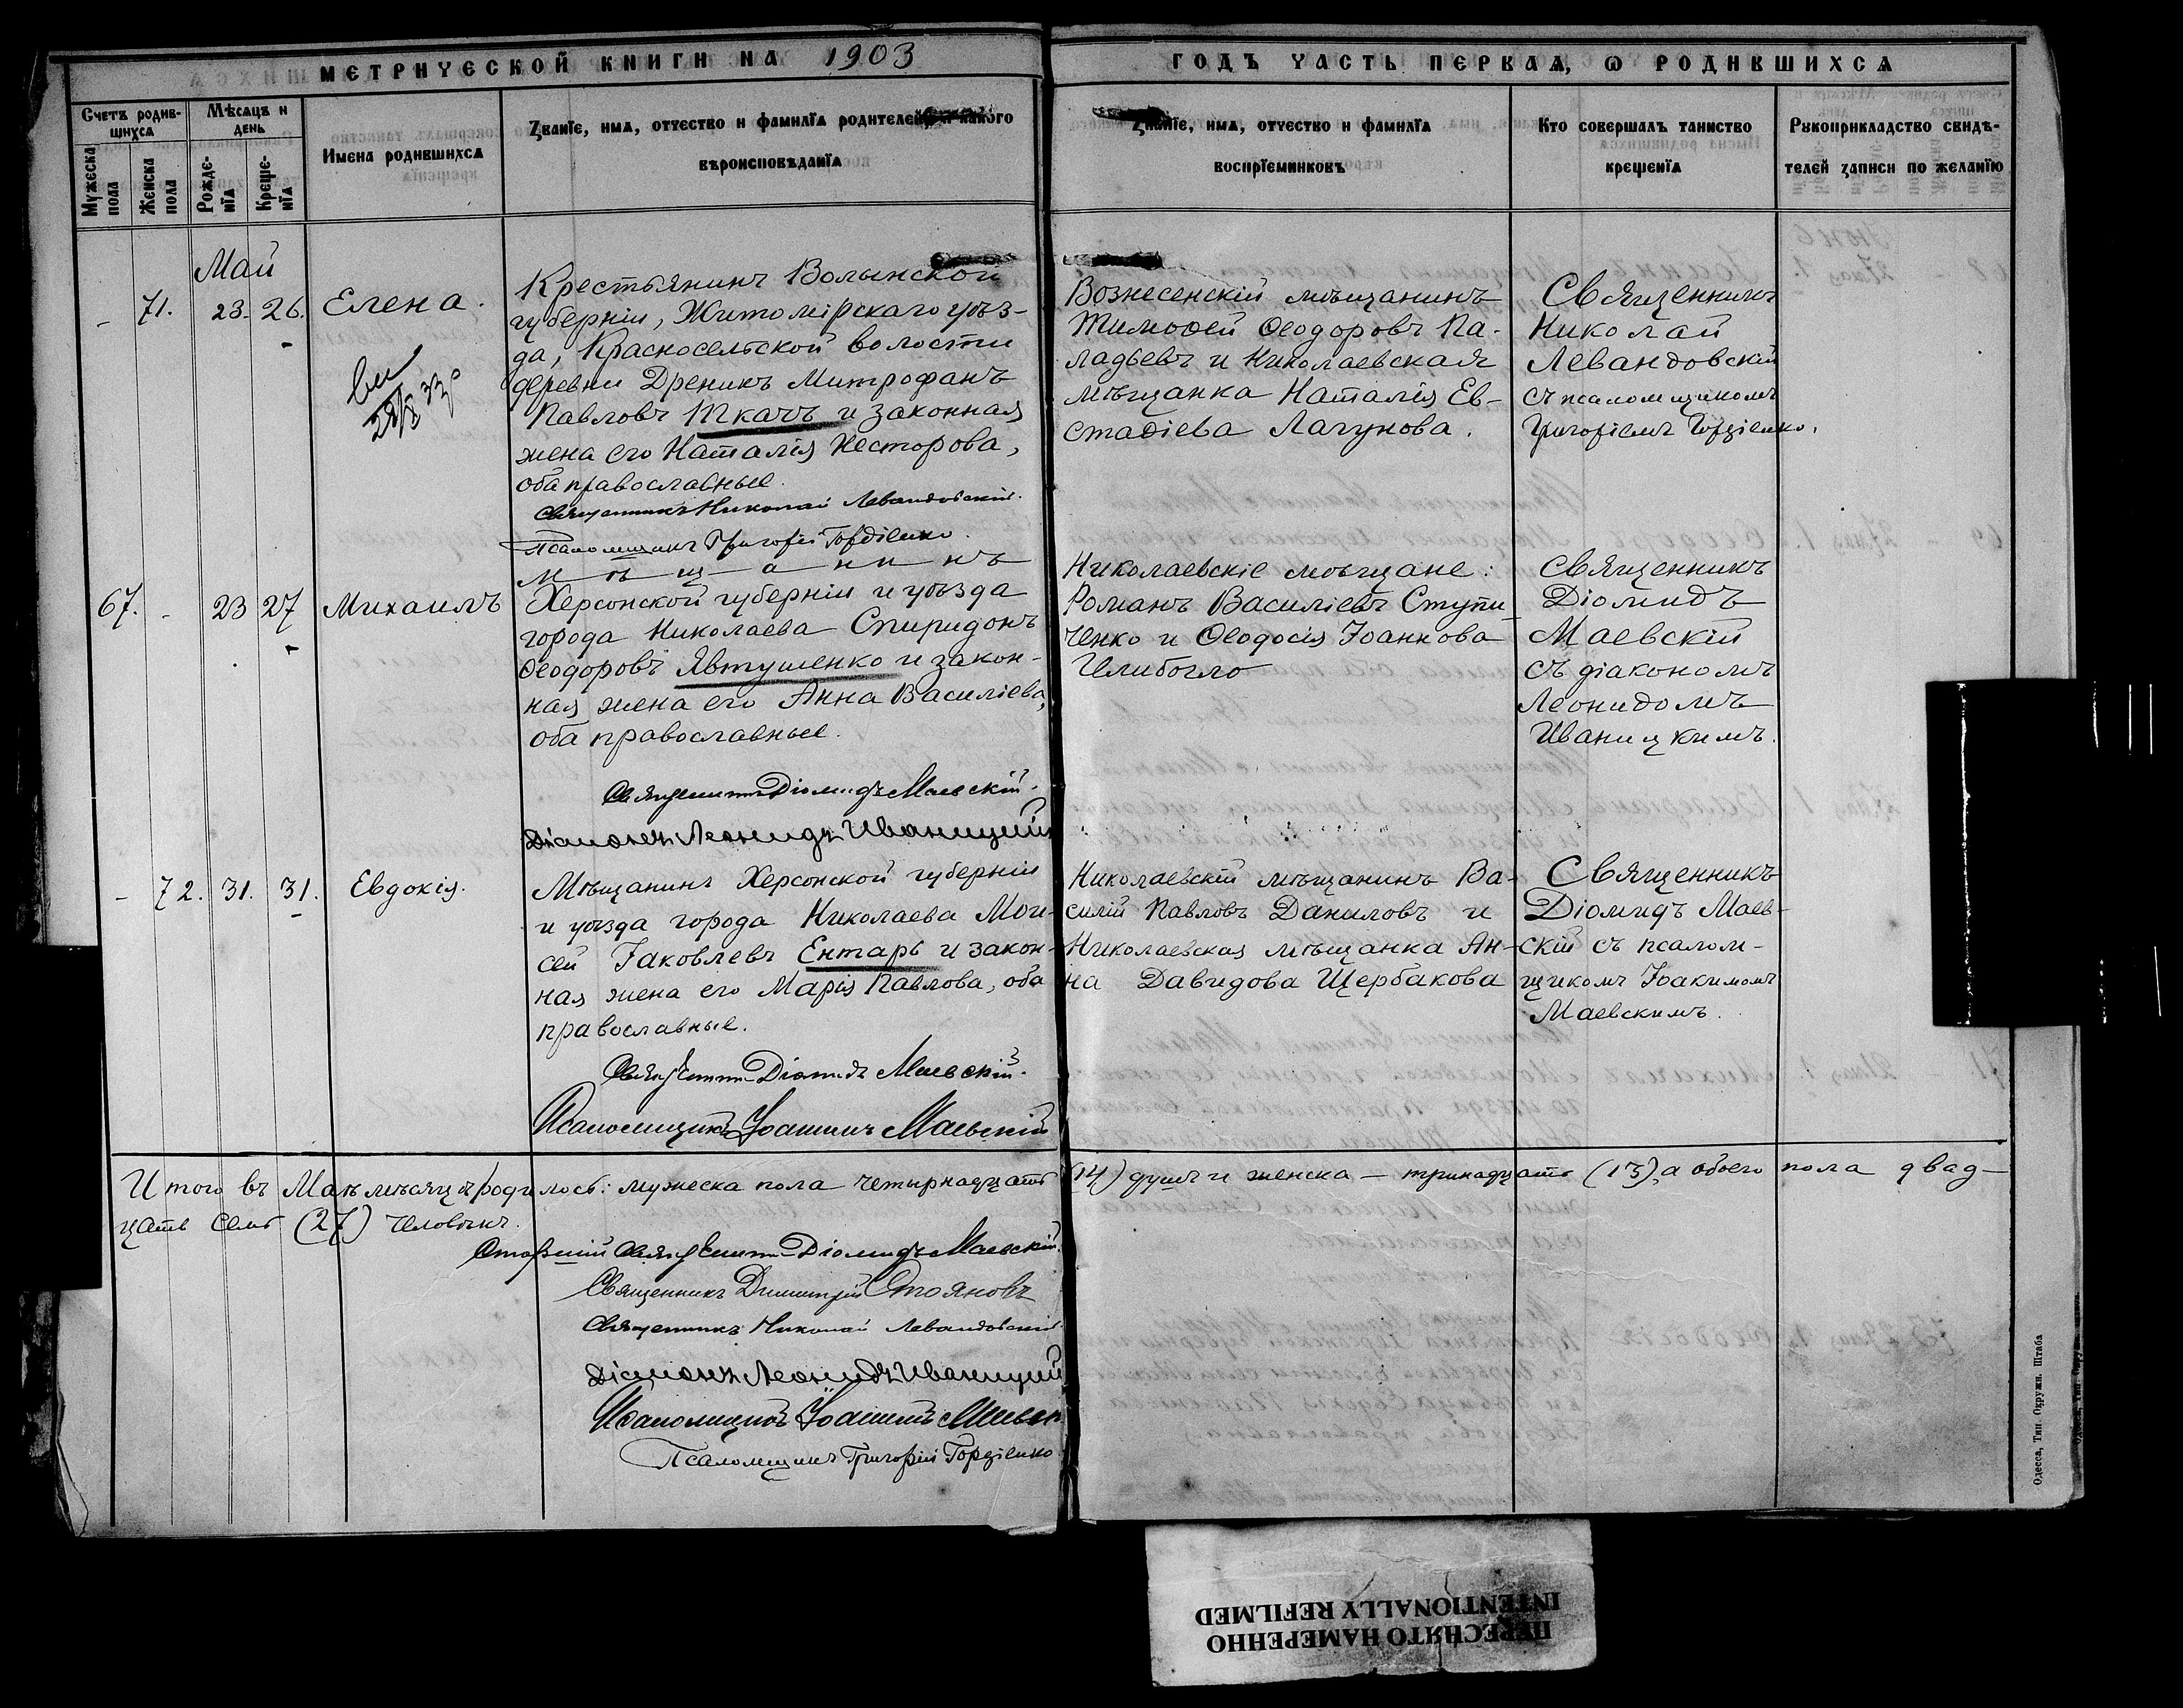 МЕТРИЧЕСКОЙ КНИГИ НА 1903
ГОДЪ ЧАСТЬ ПЕРВАЯ, Ѡ РОДИВШИХСЯ
Счетъ родив-
шихся
Мужеска
пола
Женска
пола
Мѣсяцъ и
день
Рожде-
нія
Креще-
нія
Имена родившихся
Званіе, имя, отчество и фамилія родителей и какого
вѣроисповѣданія
Званіе, имя, отчество и фамилія
воспріемниковъ
Кто совершалъ таинство
крещенія
Рукоприкладство свидѣ-
телей записи по желанію
Май
- 71. 23. 26. Елена.
Крестьянинъ Волынской
губерніи, Житомірскаго уѣз-
да, Красносельской волости
деревни Дреникъ Митрофанъ
Павловъ Ткачъ и законная
жена его Наталія Несторова,
оба православные.
Священникъ Николай Левандовскій.
Псаломщикъ Григорій Гордіенко.
Вознесенскій мѣщанинъ
Тимоѳей Ѳеодоровъ Па-
ладьевъ и Николаевская
мѣщанка Наталія Ев-
стаѳіева Лагунова.
Священникъ
Николай
Левандовскій
съ псаломщикомъ
Григоріемъ Гордіенко.
67. - 23 27 Михаилъ
Мѣщанинъ
Херсонской губерніи и уѣзда
города Николаева Спиридонъ
Ѳеодоровъ Явтушенко и закон-
ная жена его Анна Василіева,
оба православные.
Священникъ Діомидъ Маевскій.
Діаконъ Леонидъ Иваницкій
Николаевскіе мѣщане:
Романъ Василіевъ Ступи-
ченко и Ѳеодосія Іоаннова
Челибогло
Священникъ
Діомидъ
Маевскій
съ діакономъ
Леонидомъ
Иваницкимъ.
- 72. 31. 31. Евдокія.
Мѣщанинъ Херсонской губерніи
и уѣзда города Николаева Мои-
сей Іаковлевъ Ентарь и закон-
ная жена его Марія Павлова, оба
православные.
Священникъ Діомидъ Маевскій.
Псаломщикъ Іоакимъ Маевскій
Николаевскій мѣщанинъ Ва-
силій Павловъ Даниловъ и
Николаевская мѣщанка Ан-
на Давидова Щербакова
Священникъ
Діомидъ Маев-
скій съ псалом-
щикомъ Іоакимомъ
Маевскимъ.
Итого въ Маѣ мѣсяцѣ родилось: мужеска пола четырнадцать (14) душъ и женска — тринадцать (13), а обоего пола двад-
цать семь (27) человѣкъ.
Старшій Священникъ Діомидъ Маевскій.
Священникъ Димитрій Стояновъ
Священникъ Николай Левандовскій
Діаконъ Леонидъ Иваницкій
Псаломщикъ Іоакимъ Маевск
Псаломщикъ Григорій Гордіенко
Одесса, Тип. Окружн. Штаба
ПЕРЕСНЯТО НАМЕРЕННО
INTENTIONALLY REFILMED